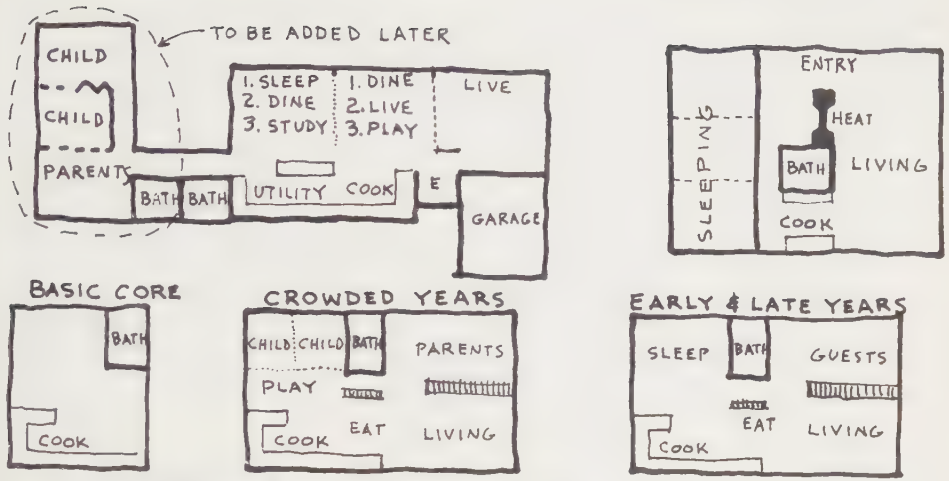 TO BE ADDED LATER
CHILD
CHILD
PARENTS
BATH
BATH
1. SLEEP
2. DINE
3. STUDY
1. DINE
2. LIVE
3. PLAY
LIVE
UTILITY
COOK
E
GARAGE
ENTRY
HEAT
SLEEPING
BATH
LIVING
COOK
BASIC CORE
BATH
COOK
CROWDED YEARS
CHILD
CHILD
BATH
PARENTS
PLAY
EAT
COOK
LIVING
EARLY & LATE YEARS
SLEEP
BATH
GUESTS
EAT
COOK
LIVING